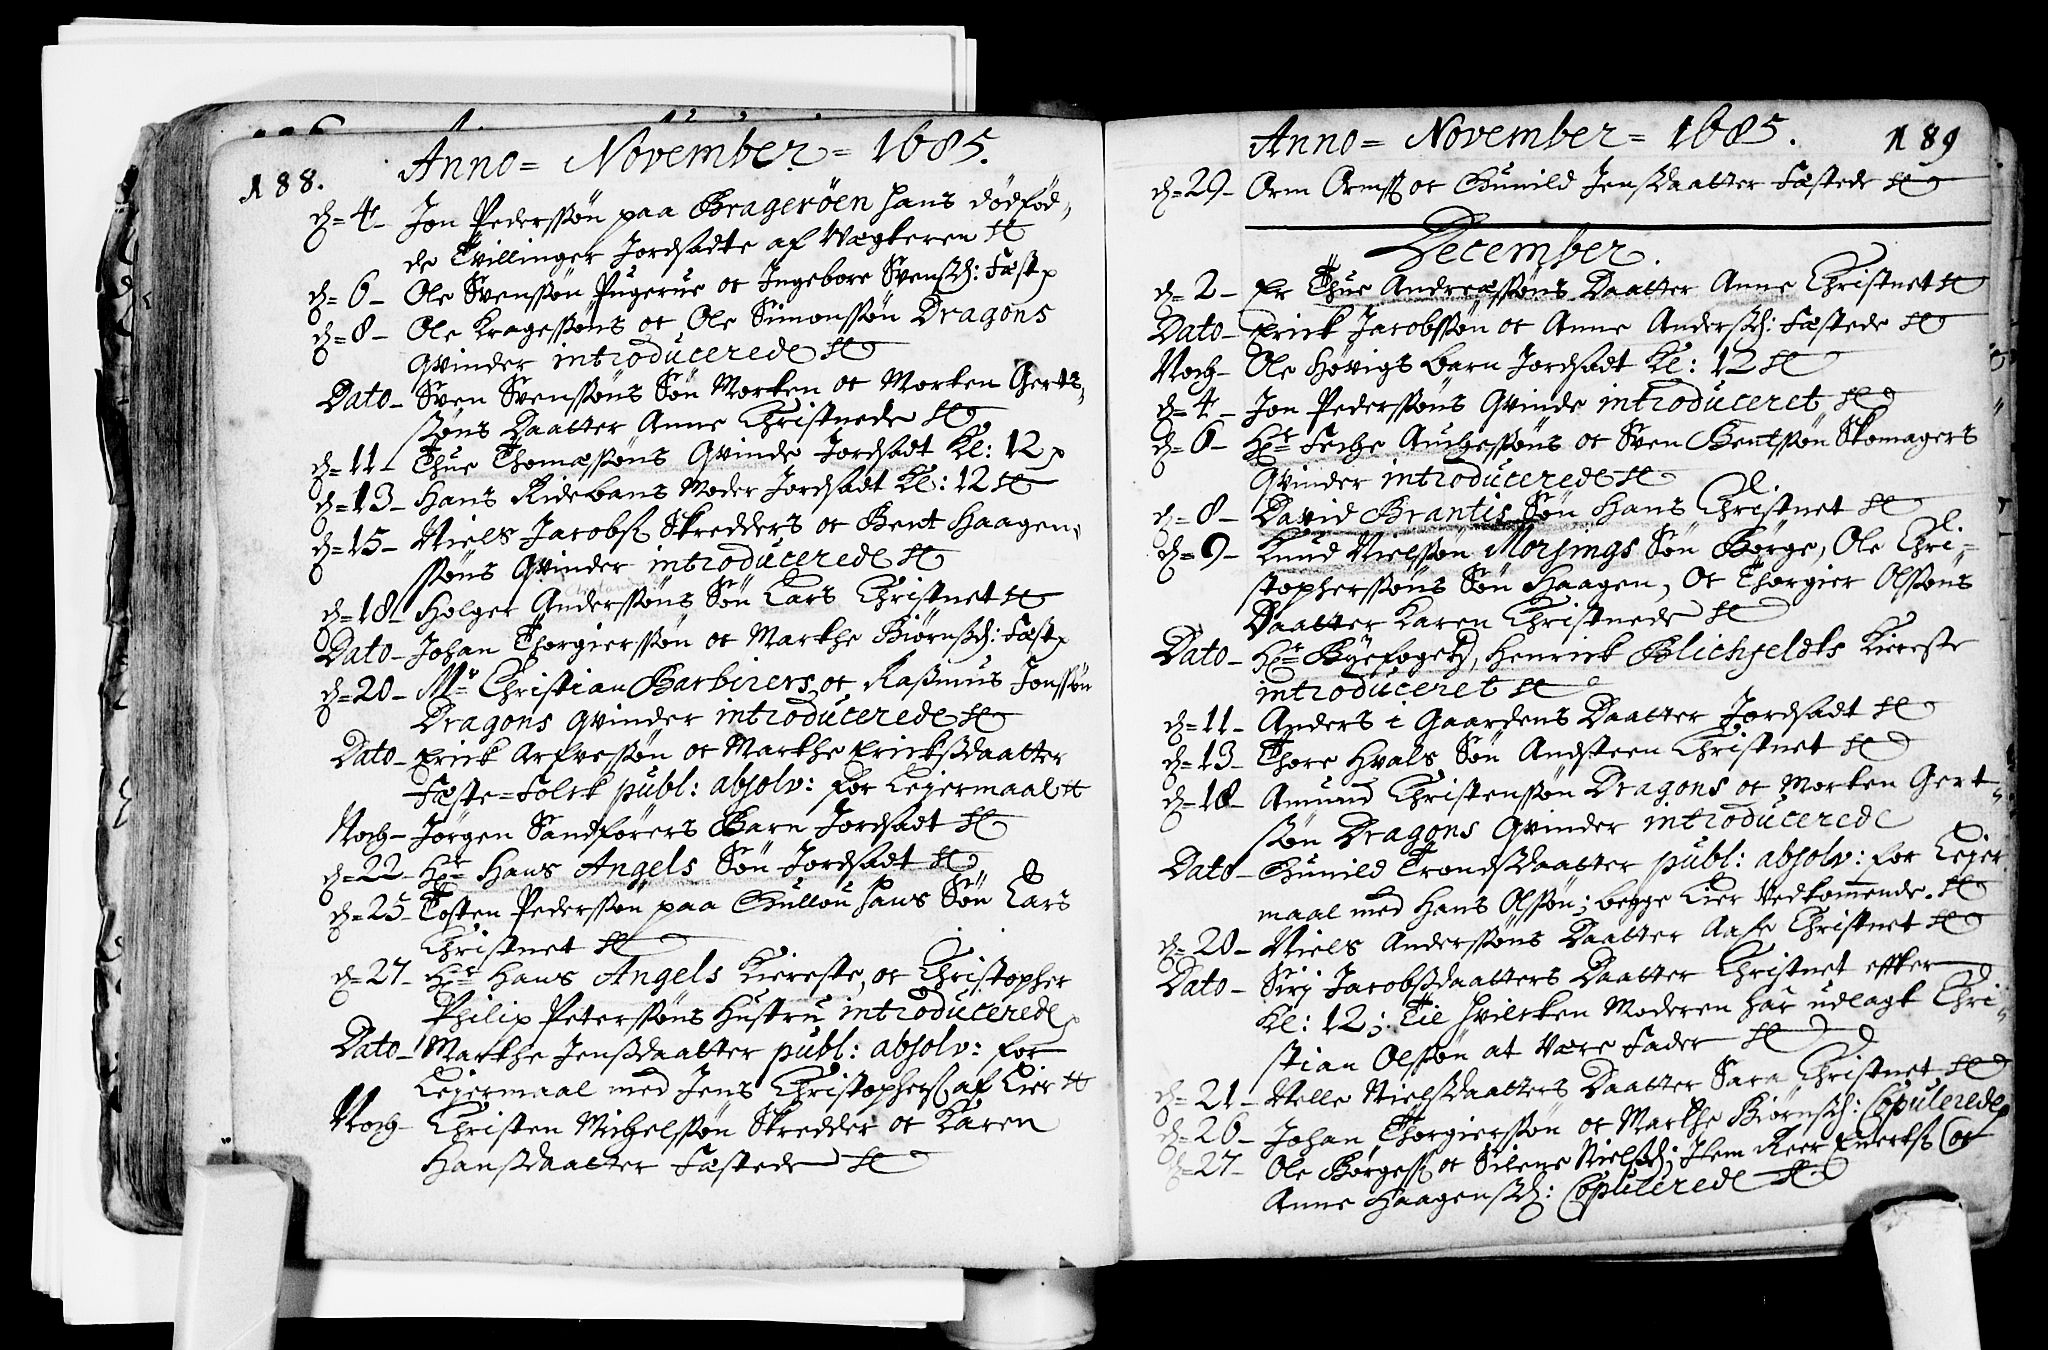 188. Anno = November = 1685.
d = 4 - Jon Pederssøn paa Bragerøen hans dødfød,
de Tvillinger Jordsadte af Vægteren
d = 6 - Ole Svenssøn Pugerue oc Ingebore Svenssd: Fæst
d = 8 - Ole Kragessøns oc Ole Simonssøn Dragons
Qvinder introducerede
Dato - Sven Svenssøns Søn Morten oc Morten Gerts,
søns Daatter Anne Christnede
d = 11 - Thue Thomæssøns Qvinde Jordsadt Kl: 12
d = 13 - Hans Ridebans Moder Jordsadt Kl: 12
d = 15 - Niels Jacobs Skredders oc Bent Haagen,
søns Qvinder introducerede
d = 18 - Holger Anderssøns Søn Lars Christnet
Dato - Johan Thorgierssøn oc Marthe Biørnsd: Fæst
d = 20 - Mr Christian Barbirers oc Rasmus Jonssøn
Dragons Qvinder introducerede
Dato - Erick Arfvessøn oc Marthe Ericksdaatter
Fæste = Folck publ: absolv: for Lejermaal
Noch - Jørgen Sandførers Barn Jordsadt
d = 22 - Hr Hans Angels Søn Jordsadt
d = 25 - Tosten Pederssøn paa Gullou hans Søn Lars
Christnet
d = 27 - Hr Hans Angels Kiereste, oc Christopher
Philip Peterssøns Hustru introducerede
Dato - Marthe Jensdaatter publ: absolv: for
Lejermaal med Jens Christophers af Lier
Noch - Christen Michelssøn Skredder oc Karen
Hansdaatter Fæstede
Anno = November = 1685. 189
d = 29 - Orm Ormss oc Gunild Jensdaatter Fæstede
December.
d = 2 - Er Thue Andreæssøns Daatter Anne Christnet
Dato - Erick Jacobssøn oc Anne Anderssd: Fæstede
Noch - Ole Høvigs Barn Jordsadt Kl: 12
d = 4 - Jon Pederssøns Qvinde introduceret
d = 6 - Hr Feche Auchessøns oc Sven Bentssøn Skomagers
Qvinder introducerede
d = 8 - David Brantis Søn Hans Christnet
d = 9 - Knud Nielssøn Morsings Søn Børge, Ole Chri =
stopherssøns Søn Haagen, oc Thorgier Olssøns
Daatter Karen Christnede
Dato - Hr Byefoget, Henrick Blichfeldts Kiereste
introduceret
d = 11 - Anders i Gaardens Daatter Jordsadt
d = 13 - Thore Hvals Søn Andsteen Christnet
d = 18 - Amund Christenssøn Dragons oc Morten Gert =
søn Dragons Qvinder introducerede
Dato - Gunild Trondsdaatter publ: absolv: for Lejer
maal med Hans Olssøn; begge Lier Vedkommende.
d = 20 - Niels Anderssøns Daatter Aase Christnet
Dato - Sirj Jacobsdaatters Daatter Christnet effter
Kl: 12; Til hvilcken Moderen har udlagt Chri =
stian Olssøn at være Fader
d = 21 - Nelle Nielsdaatters Daatter Sara Christnet
d = 26 - Johan Thorgierssøn oc Marthe Biørnsd: Copulerede
d = 27 - Ole Børgess oc Silene Nielsd; Item Reer Everts oc
Anne Haagenssd: Copulerede